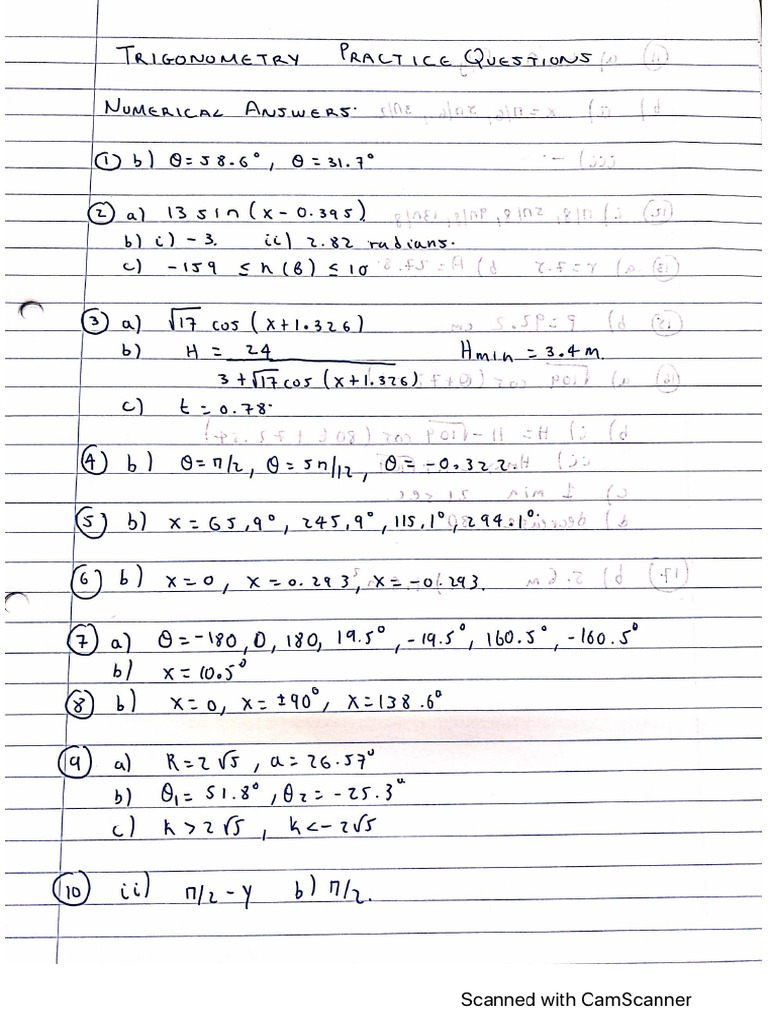 TRIGONOMETRY PRACTICE QUESTIONS
NUMERICAL ANSWERS.
① b) θ=58.6°, θ=31.7°
② a) 13 sin(x-0.395)
b) i) -3. ii) 2.82 radians.
c) -159 ≤ h(θ) ≤ 10
③ a) √17 cos (x+1.326)
b) H = 24 Hmin = 3.4 m.
3+√17cos(x+1.326)
c) t=0.78.
④ b) θ=π/2, θ=5π/12, θ=-0.322
⑤ b) x=65,9°, 245,9°, 115,1°, 294.1°.
⑥ b) x=0, x=0.293, x=-0.293.
⑦ a) θ=-180, 0, 180, 19.5°, -19.5°, 160.5°, -160.5°
b) x=10.5°
⑧ b) x=0, x=±90°, x=138.6°
⑨ a) R=2√5, a=26.57°
b) θ1=51.8°, θ2=-25.3°
c) k>2√5, k<-2√5
⑩ ii) π/2-y b) π/2.
Scanned with CamScanner